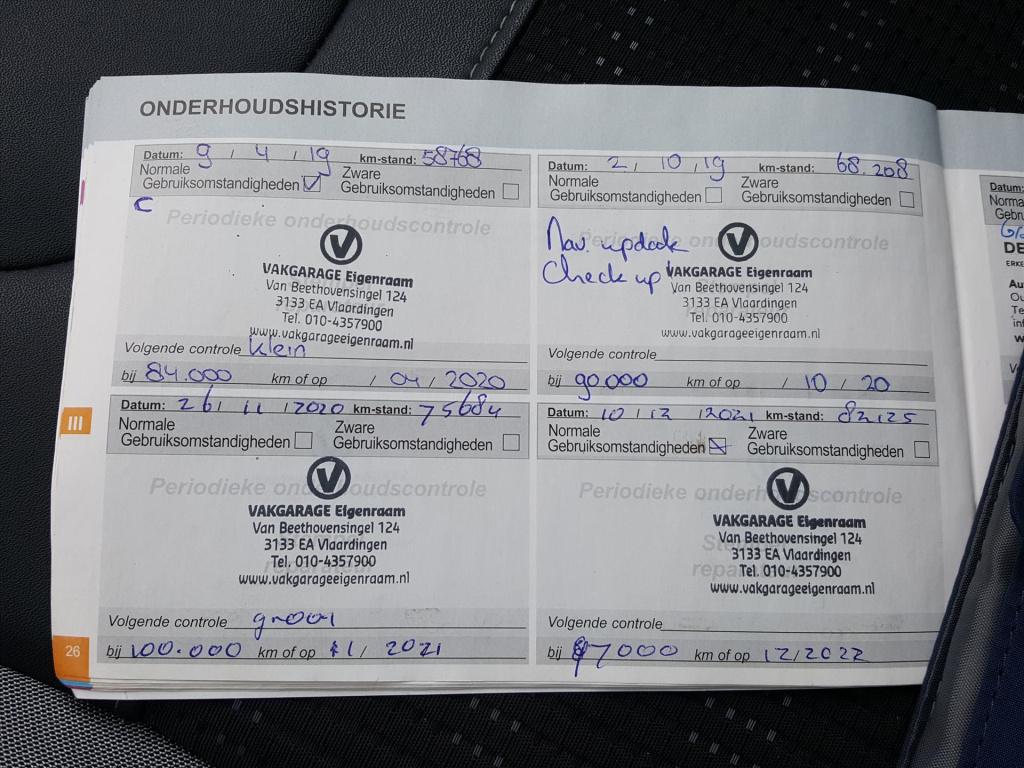 ONDERHOUDSHISTORIE
Datum: 9 / 4 / 19 km-stand: 58768
Normale Gebruiksomstandigheden
Zware Gebruiksomstandigheden
C
Periodieke onderhoudscontrole
V
VAKGARAGE Eigenraam
Van Beethovensingel 124
3133 EA Vlaardingen
Tel. 010-4357900
www.vakgarageeigenraam.nl
Volgende controle klein
bij 84.000 km of op / 04 / 2020
Datum: 2 / 10 / 19 km-stand: 68.208
Normale Gebruiksomstandigheden
Zware Gebruiksomstandigheden
Periodieke onderhoudscontrole
Nav. updaak
Check up
V
VAKGARAGE Eigenraam
Van Beethovensingel 124
3133 EA Vlaardingen
Tel. 010-4357900
www.vakgarageeigenraam.nl
Volgende controle
bij 90.000 km of op / 10 / 20
III
Datum: 26 / 11 / 2020 km-stand: 75684
Normale Gebruiksomstandigheden
Zware Gebruiksomstandigheden
Periodieke onderhoudscontrole
V
VAKGARAGE Eigenraam
Van Beethovensingel 124
3133 EA Vlaardingen
Tel. 010-4357900
www.vakgarageeigenraam.nl
Volgende controle groot
bij 100.000 km of op 11 / 2021
Datum: 10 / 12 / 2021 km-stand: 82125
Normale Gebruiksomstandigheden
Zware Gebruiksomstandigheden
Periodieke onderhoudscontrole
V
VAKGARAGE Eigenraam
Van Beethovensingel 124
3133 EA Vlaardingen
Tel. 010-4357900
www.vakgarageeigenraam.nl
Volgende controle
bij 97000 km of op 12/2022
26
Datum: